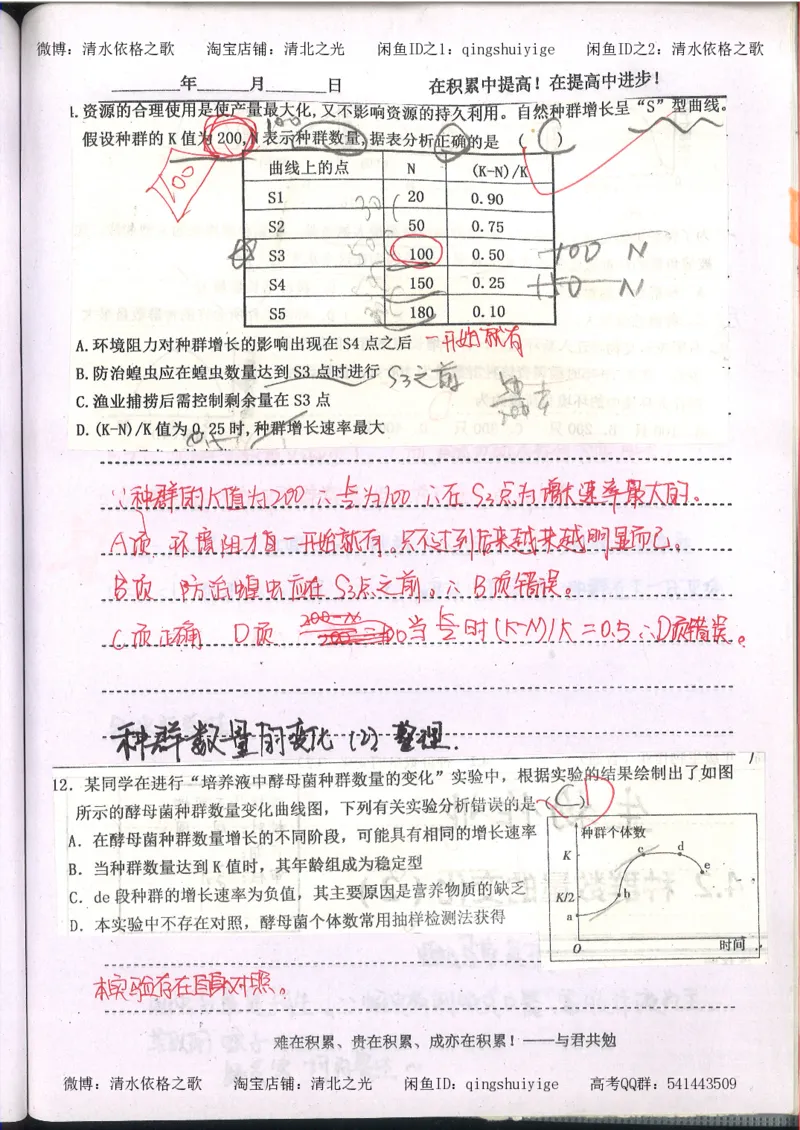 微博：清水依格之歌 淘宝店铺：清北之光 闲鱼ID之1：qingshuiyige 闲鱼ID之2：清水依格之歌
______年______月______日 在积累中提高！在提高中进步！
1.资源的合理使用是使产量最大化,又不影响资源的持久利用。自然种群增长呈“S”型曲线。
假设种群的K值为200,N表示种群数量,据表分析正确的是 （ C ）
100
曲线上的点 N (K-N)/K
S1 20 0.90
S2 50 0.75
S3 100 0.50 100 N
S4 150 0.25 150 N
S5 180 0.10
A.环境阻力对种群增长的影响出现在S4点之后 一开始就有
B.防治蝗虫应在蝗虫数量达到S3点时进行 S3之前
C.渔业捕捞后需控制剩余量在S3点
D.(K-N)/K值为0.25时,种群增长速率最大
∵种群的K值为200 ∴K/2为100 ∴在S3点为增长速率最大的。
A项 环境阻力自一开始就有,只不过到后来越来越明显而已。
B项 防治蝗虫应在S3点之前。∴B项错误。
C项正确 D项 当K/2时(K-N)/K=0.5∴D项错误。
种群数量的变化(2)整理.
12．某同学在进行“培养液中酵母菌种群数量的变化”实验中，根据实验的结果绘制出了如图
所示的酵母菌种群数量变化曲线图，下列有关实验分析错误的是（C）D
A．在酵母菌种群数量增长的不同阶段，可能具有相同的增长速率
B．当种群数量达到K值时，其年龄组成为稳定型
C．de段种群的增长速率为负值，其主要原因是营养物质的缺乏
D．本实验中不存在对照，酵母菌个体数常用抽样检测法获得
种群个体数
K
c
d
e
K/2
b
a
O
时间
本实验存在自身对照。
难在积累、贵在积累、成亦在积累！——与君共勉
微博：清水依格之歌 淘宝店铺：清北之光 闲鱼ID：qingshuiyige 高考QQ群：541443509